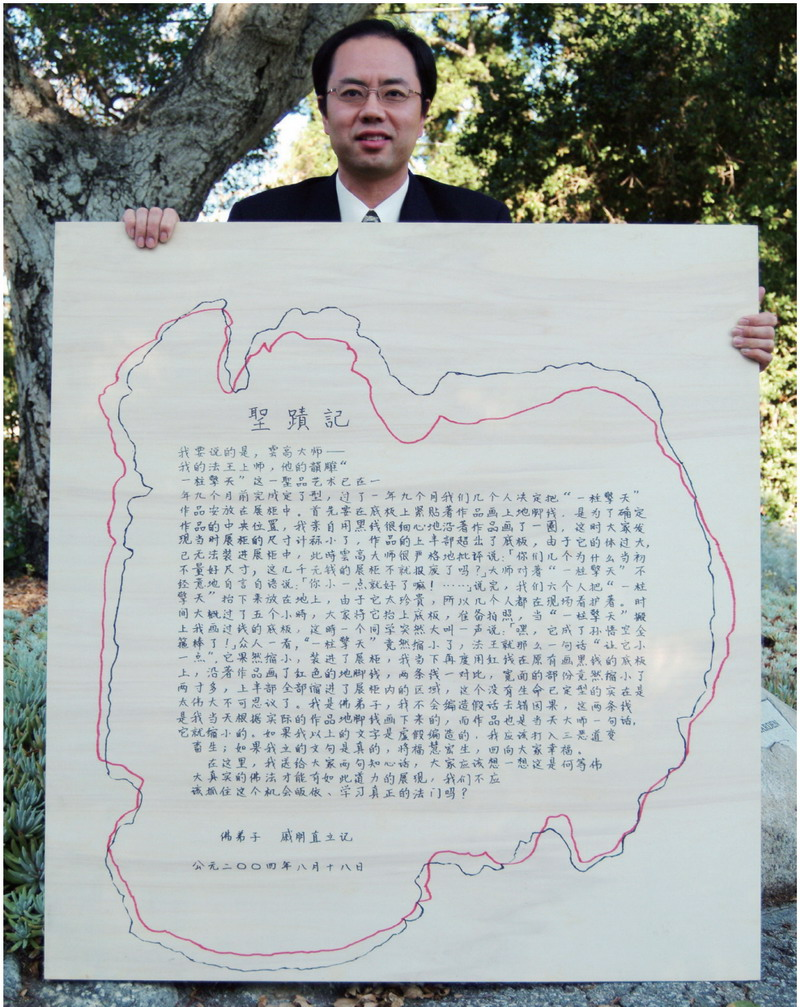 聖蹟記
我要说的是，雲高大师——
我的法王上师，他的韻雕“
一柱擎天”这一聖品艺术已在一
年九个月前完成定了型，过了一年九个月我们几个人决定把“一柱擎天”
作品安放在展柜中。首先要在底板上紧贴著作品画上地脚线，是为了确定
作品的中央位置，我亲自用黑线很细心地沿著作品画了一圈，这时大家发
现当时展柜的尺寸计称小了，作品的上半部超出了底板，由于它的体过大，
已无法装進展柜中，此時雲高大师很严格地批评说：「你们几个为什么当初
不量好尺寸，这几千元钱的展柜不就报废了吗？」大师对著“一柱擎天”不
经意地自言自语说：「你小一点就好了嘛！……」说完，我们六个人把“一柱
擎天”抬下来放在地上，由于它太珍贵，所以几个人都在现场看护著。时
间大概过了五个小時，大家将它抬上底板，准备拍照，当“一柱擎天”搬
上我画过线的底板，这時一个同学突然大叫一声说：「嘿，它成了孙悟空金
箍棒了！」众人一看，“一柱擎天”竟然缩小了，法王就那么一句话“让它小
一点”，它果然缩小，装進了展柜，我当下再度用红线在原有画黑线的底板
上，沿著作品画了红色的地脚线，两条线一对比，宽面的部份竟然缩小了
两寸多，上半部全部缩進了展柜内的区域，这个没有生命已定型的实在是
太伟大不可思议了。我是佛弟子，我不会编造假话去错因果，这两条线
是我当天根据实际的作品地脚线画下来的，而作品也是当天大师一句话，
它就缩小的。如果我以上的文字是虚假编造的，我应该打入三恶道变
畜生；如果我立的文句是真的，将福慧宏生，回向大家幸福。
在这里，我送给大家两句知心话，大家应该想一想这是何等伟
大真实的佛法才能有如此道力的展现，我们不应
该抓住这个机会皈依、学习真正的法门吗？
佛弟子 戚朋直立记
公元二〇〇四年八月十八日